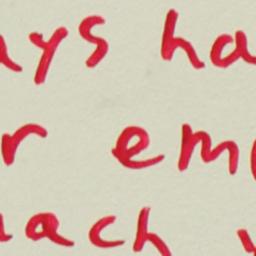 ays ha
r em
ach